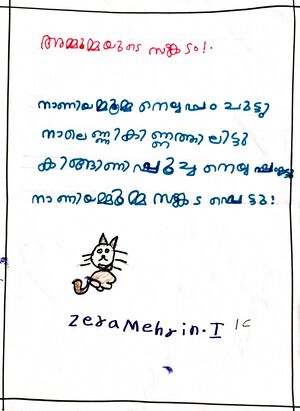 അമ്മുമ്മയുടെ സങ്കടം!.
നാണിയമ്മുമ്മ നെയ്യപ്പം ചുട്ടു
നാലെണ്ണികിണ്ണത്തിലിട്ടു
കിങ്ങിണി പൂച്ച നെയ്യപ്പം കട്ടു
നാണിയമ്മുമ്മ സങ്കടപ്പെട്ടു!
Zera Mehrin. I 1C